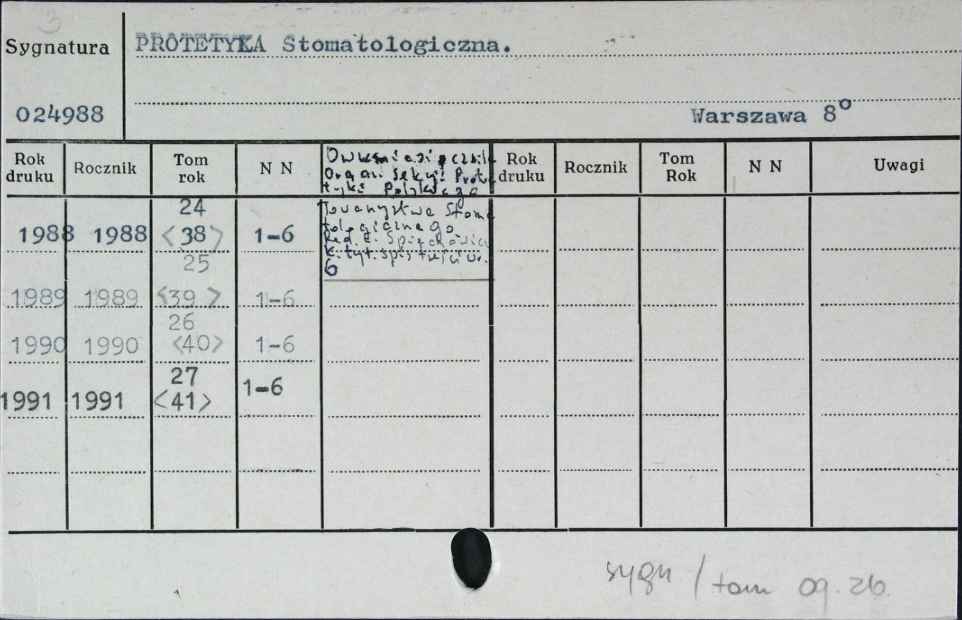 Sygnatura
PROTETYKA Stomatologiczna.
024988
Warszawa 8°
Rok druku Rocznik Tom rok N N Dwumiesięcznik Rok druku Rocznik Tom Rok N N Uwagi
Organ Sekcji Prote
tyki Polskiego
Towarzystwa Stoma
tologicznego
Red. E. Spiechowicz
K. tyt.
6
24
1988 1988 <38> 1-6
25
1989 1989 <39> 1-6
26
1990 1990 <40> 1-6
27
1991 1991 <41> 1-6
sygn / tom 09.26.